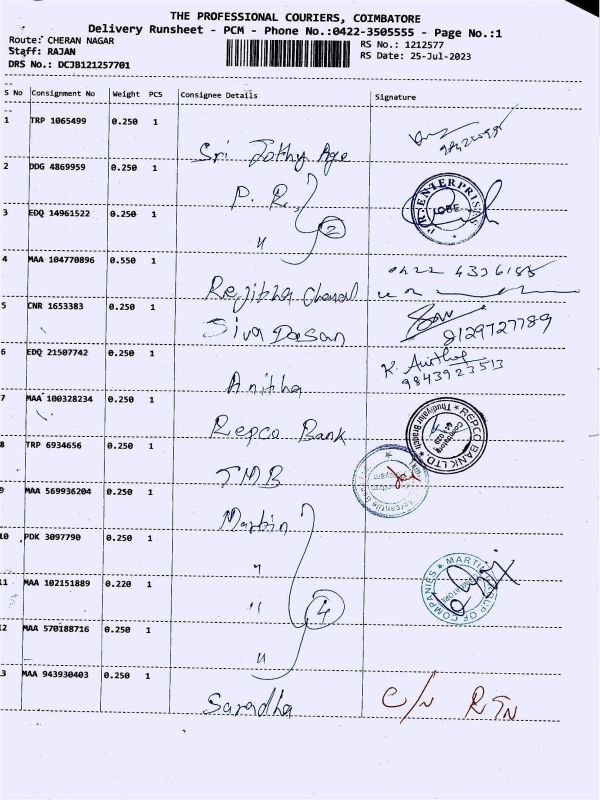 THE PROFESSIONAL COURIERS, COIMBATORE
Delivery Runsheet - PCM - Phone No.:0422-3505555 - Page No.:1
Route: CHERAN NAGAR
RS No.: 1212577
Staff: RAJAN
RS Date: 25-Jul-2023
DRS No.: DCJB121257701
S No Consignment No Weight PCS Consignee Details Signature
1 TRP 1065499 0.250 1
Sri Jothy Age
2 DDG 4869959 0.250 1
P. R.
P.R. ENTERPRISES
3 EDQ 14961522 0.250 1
" 2
4 MAA 104770896 0.550 1
Rejitha
5 CNR 1653383 0.250 1
Siva Dasan 8129727789
6 EDQ 21507742 0.250 1
K. Anitha
Anitha 9843923513
7 MAA 100328234 0.250 1
Repco Bank
REPCO BANK LTD.
8 TRP 6934656 0.250 1
TMB
9 MAA 569936204 0.250 1
Martin
10 PDK 3097790 0.250 1
"
MARTIN GROUP OF COMPANIES
11 MAA 102151889 0.220 1
" 4
12 MAA 570188716 0.250 1
"
13 MAA 943930403 0.250 1
Saradha C/N RTN